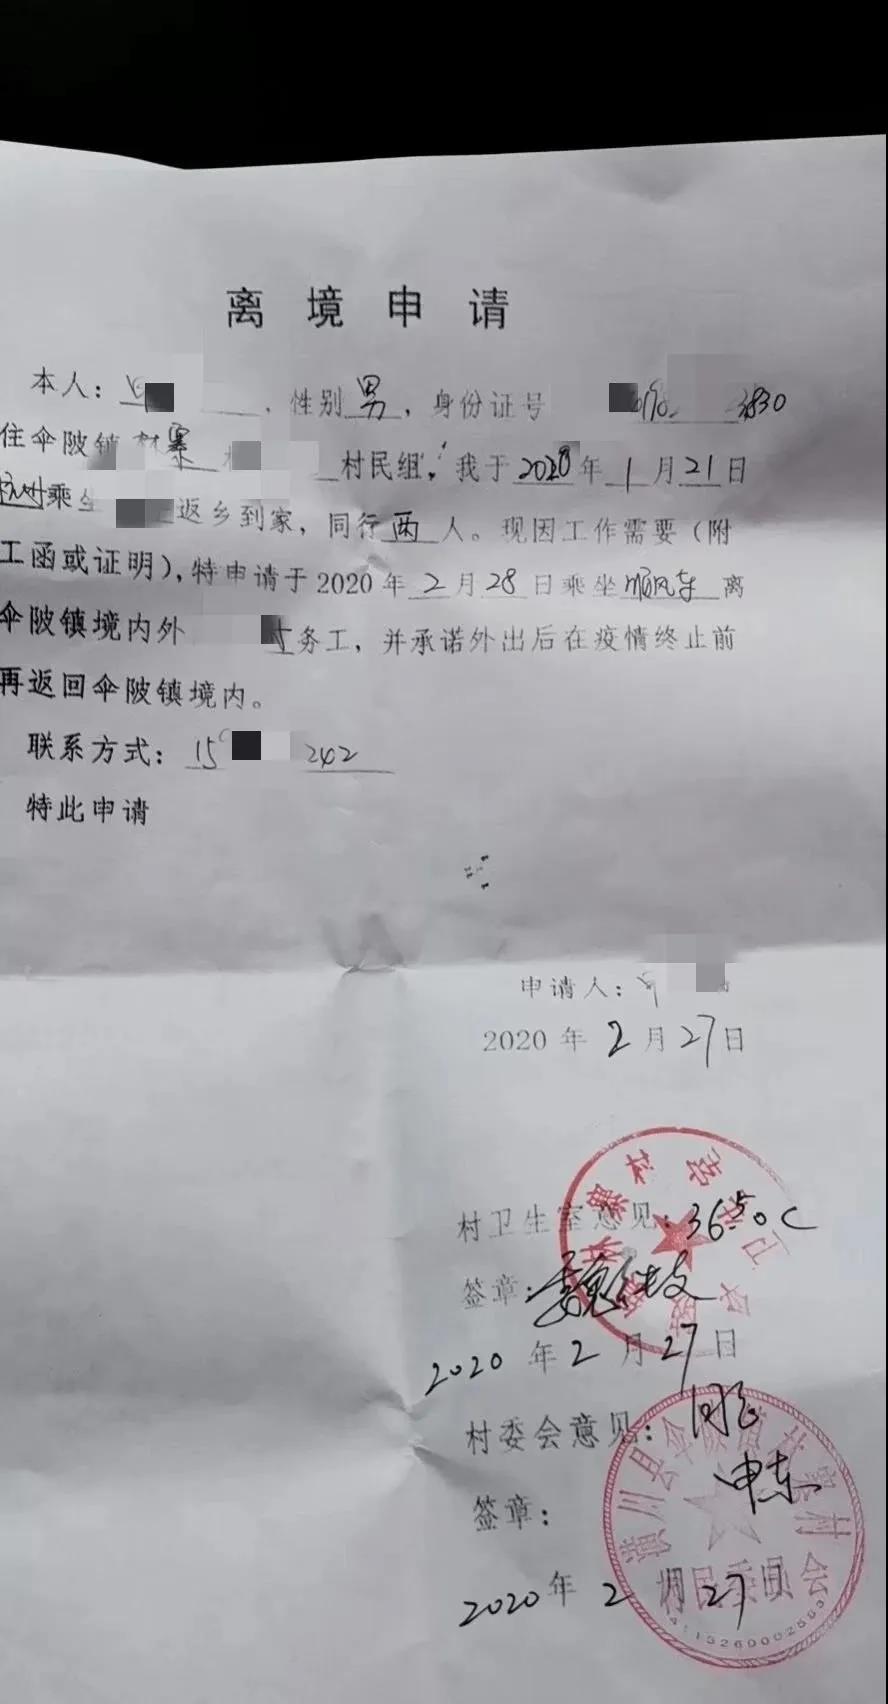 离境申请
本人: ，性别男，身份证号 3830
住伞陂镇 寨 村民组，我于2020年1月21日
杭州乘坐 返乡到家，同行两人。现因工作需要（附
工函或证明），特申请于2020年2月28日乘坐顺风车离
伞陂镇境内外 务工，并承诺外出后在疫情终止前
再返回伞陂镇境内。
联系方式：15 242
特此申请
申请人：
2020年2月27日
村卫生室意见：36.5°C
签章：
2020年2月27日
村委会意见：同意
签章：申东
2020年2月27日
潢川县伞陂镇 寨村
村民委员会